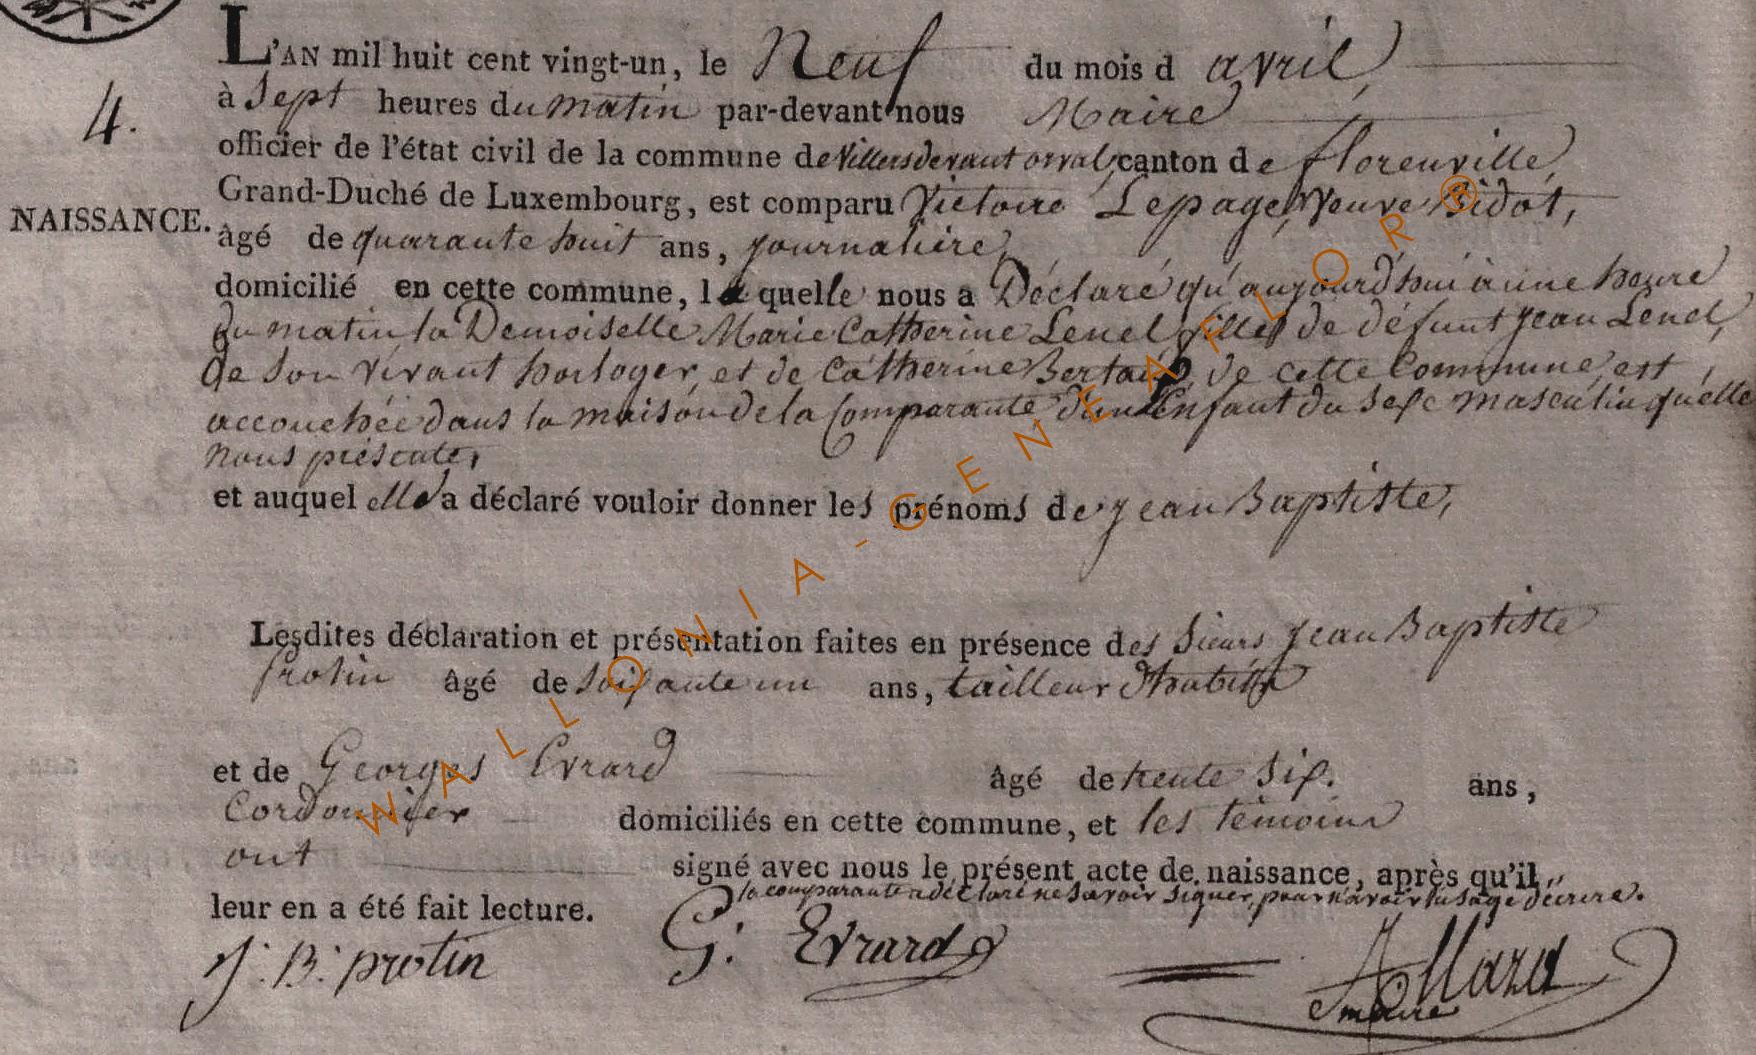 L'AN mil huit cent vingt-un, le Neuf du mois d avril,
4.
à Sept heures du matin par-devant nous Maire
officier de l'état civil de la commune de Villersdevant orval, canton de florenville,
Grand-Duché de Luxembourg, est comparu Victoire Lepage, Veuve Bidot,
NAISSANCE.
âgé de quarante huit ans, journalière,
domicilié en cette commune, laquelle nous a Déclaré qu'aujourd'hui à une heure
du matin la Demoiselle Marie Catherine Lenel fille de défunt Jean Lenel,
de Son vivant horloger, et de Catherine de cette Commune, est
accouchée dans la maison de la Comparante d'un Enfant du Sexe masculin qu'elle
nous présente,
et auquel elle a déclaré vouloir donner les prénoms de jean Baptiste,
Lesdites déclaration et présentation faites en présence des Sieurs Jean Baptiste
Protin âgé de Soixante un ans, tailleur d'habits
et de Georges Evrard âgé de trente Six. ans,
Cordonnier domiciliés en cette commune, et les témoins
ont signé avec nous le présent acte de naissance, après qu'il
la comparante a déclaré ne Savoir Signer, pour n'avoir l'usage d'écrire.
leur en a été fait lecture.
J. B. protin G. Evrard
maire
WALLONIA-GENEAFLORR®